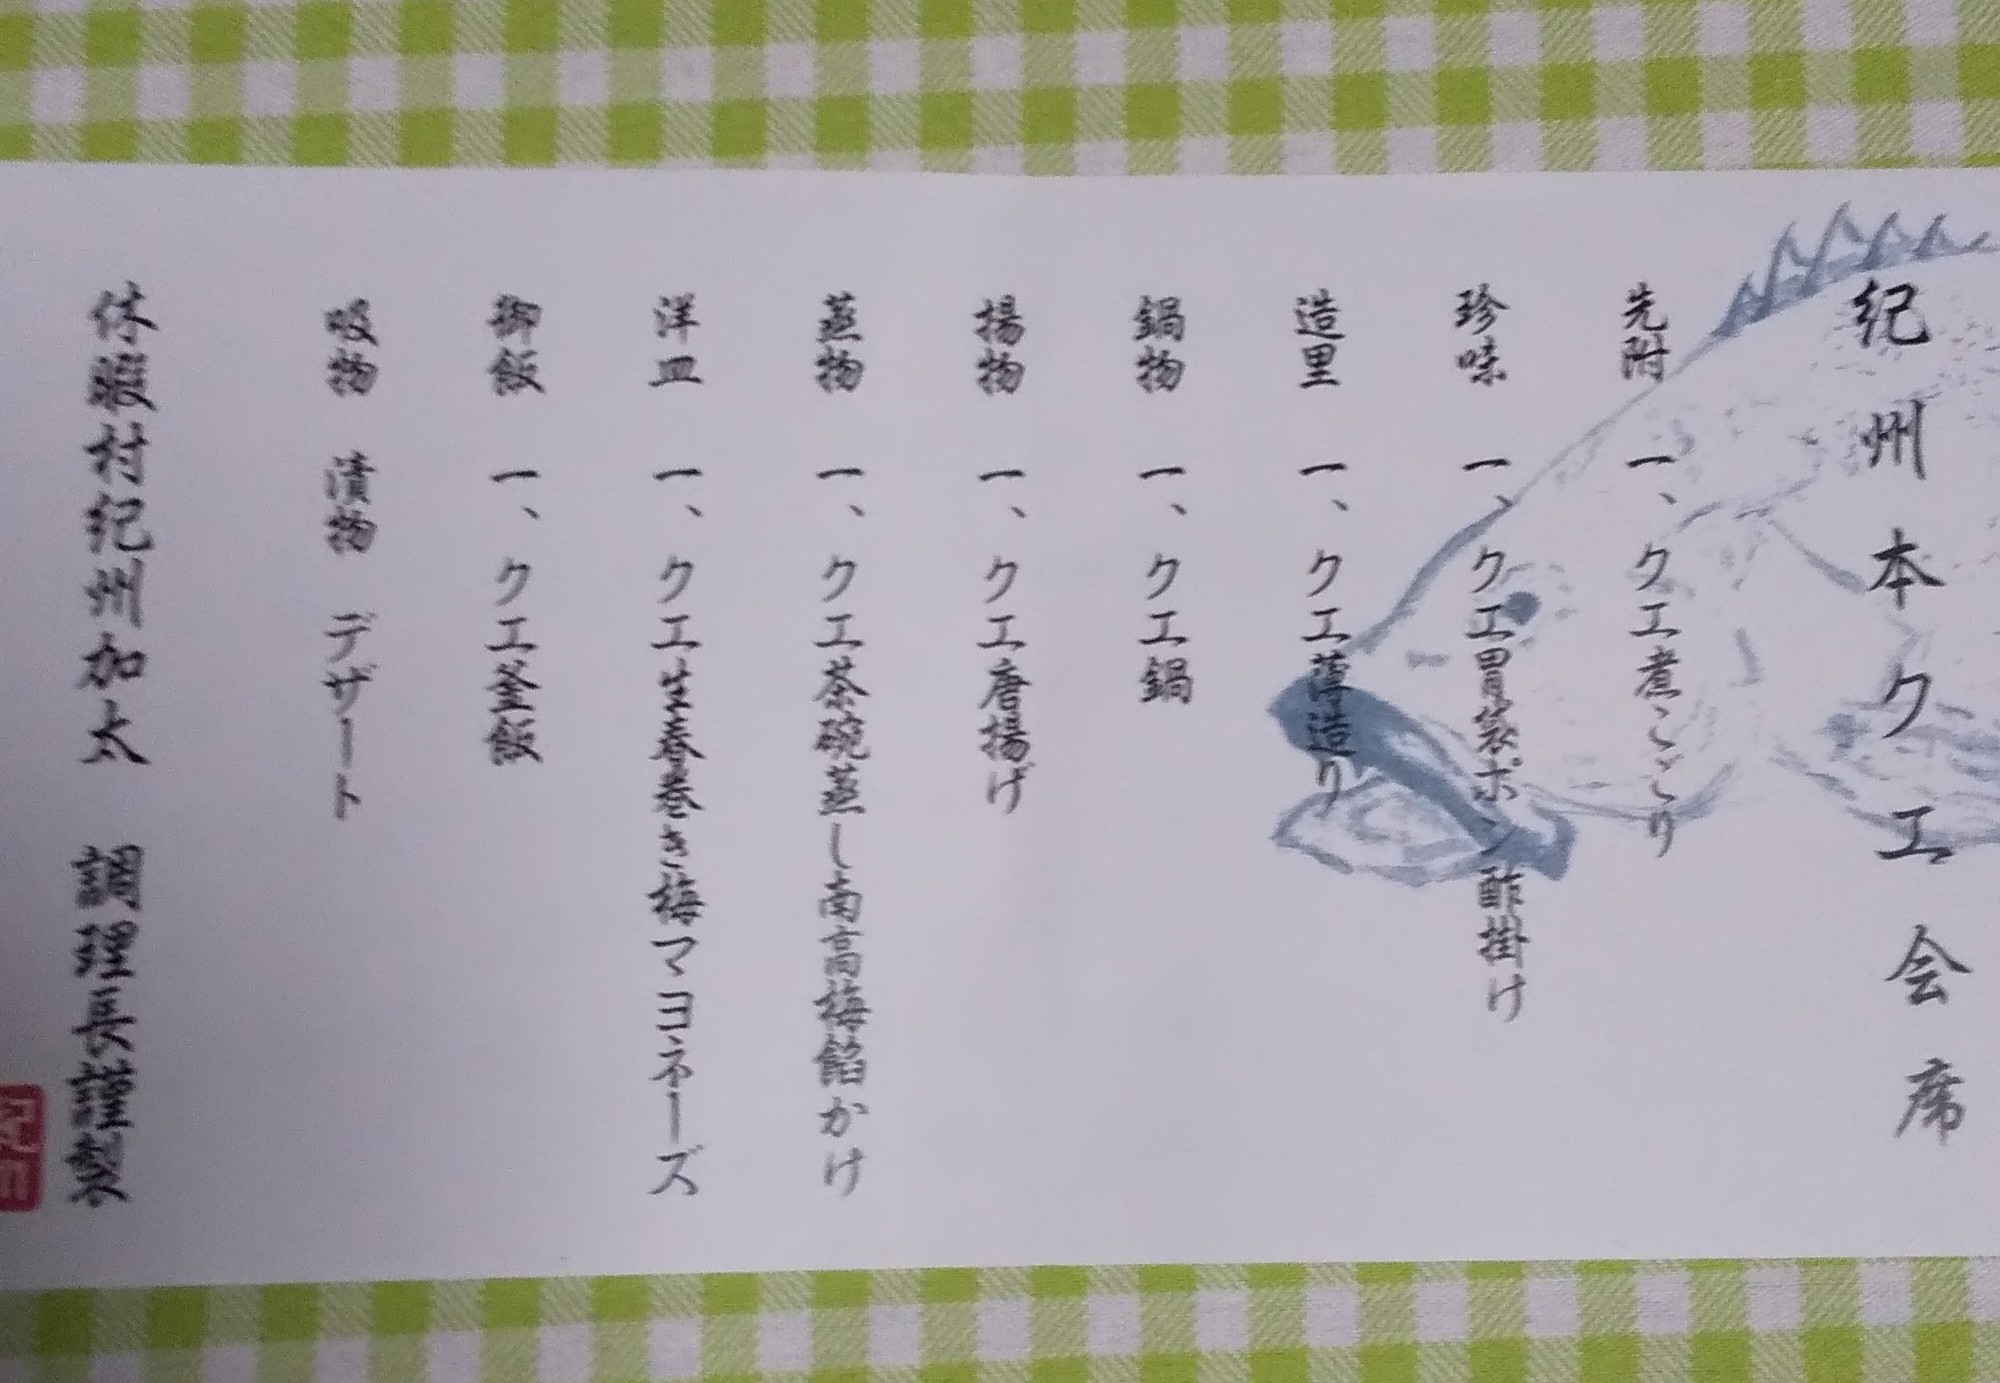 紀州本クエ会席
先附 一、クエ煮こごり
珍味 一、クエ胃袋ポン酢掛け
造里 一、クエ薄造り
鍋物 一、クエ鍋
揚物 一、クエ唐揚げ
蒸物 一、クエ茶碗蒸し南高梅餡かけ
洋皿 一、クエ生春巻き梅マヨネーズ
御飯 一、クエ釜飯
吸物 漬物 デザート
休暇村紀州加太 調理長謹製